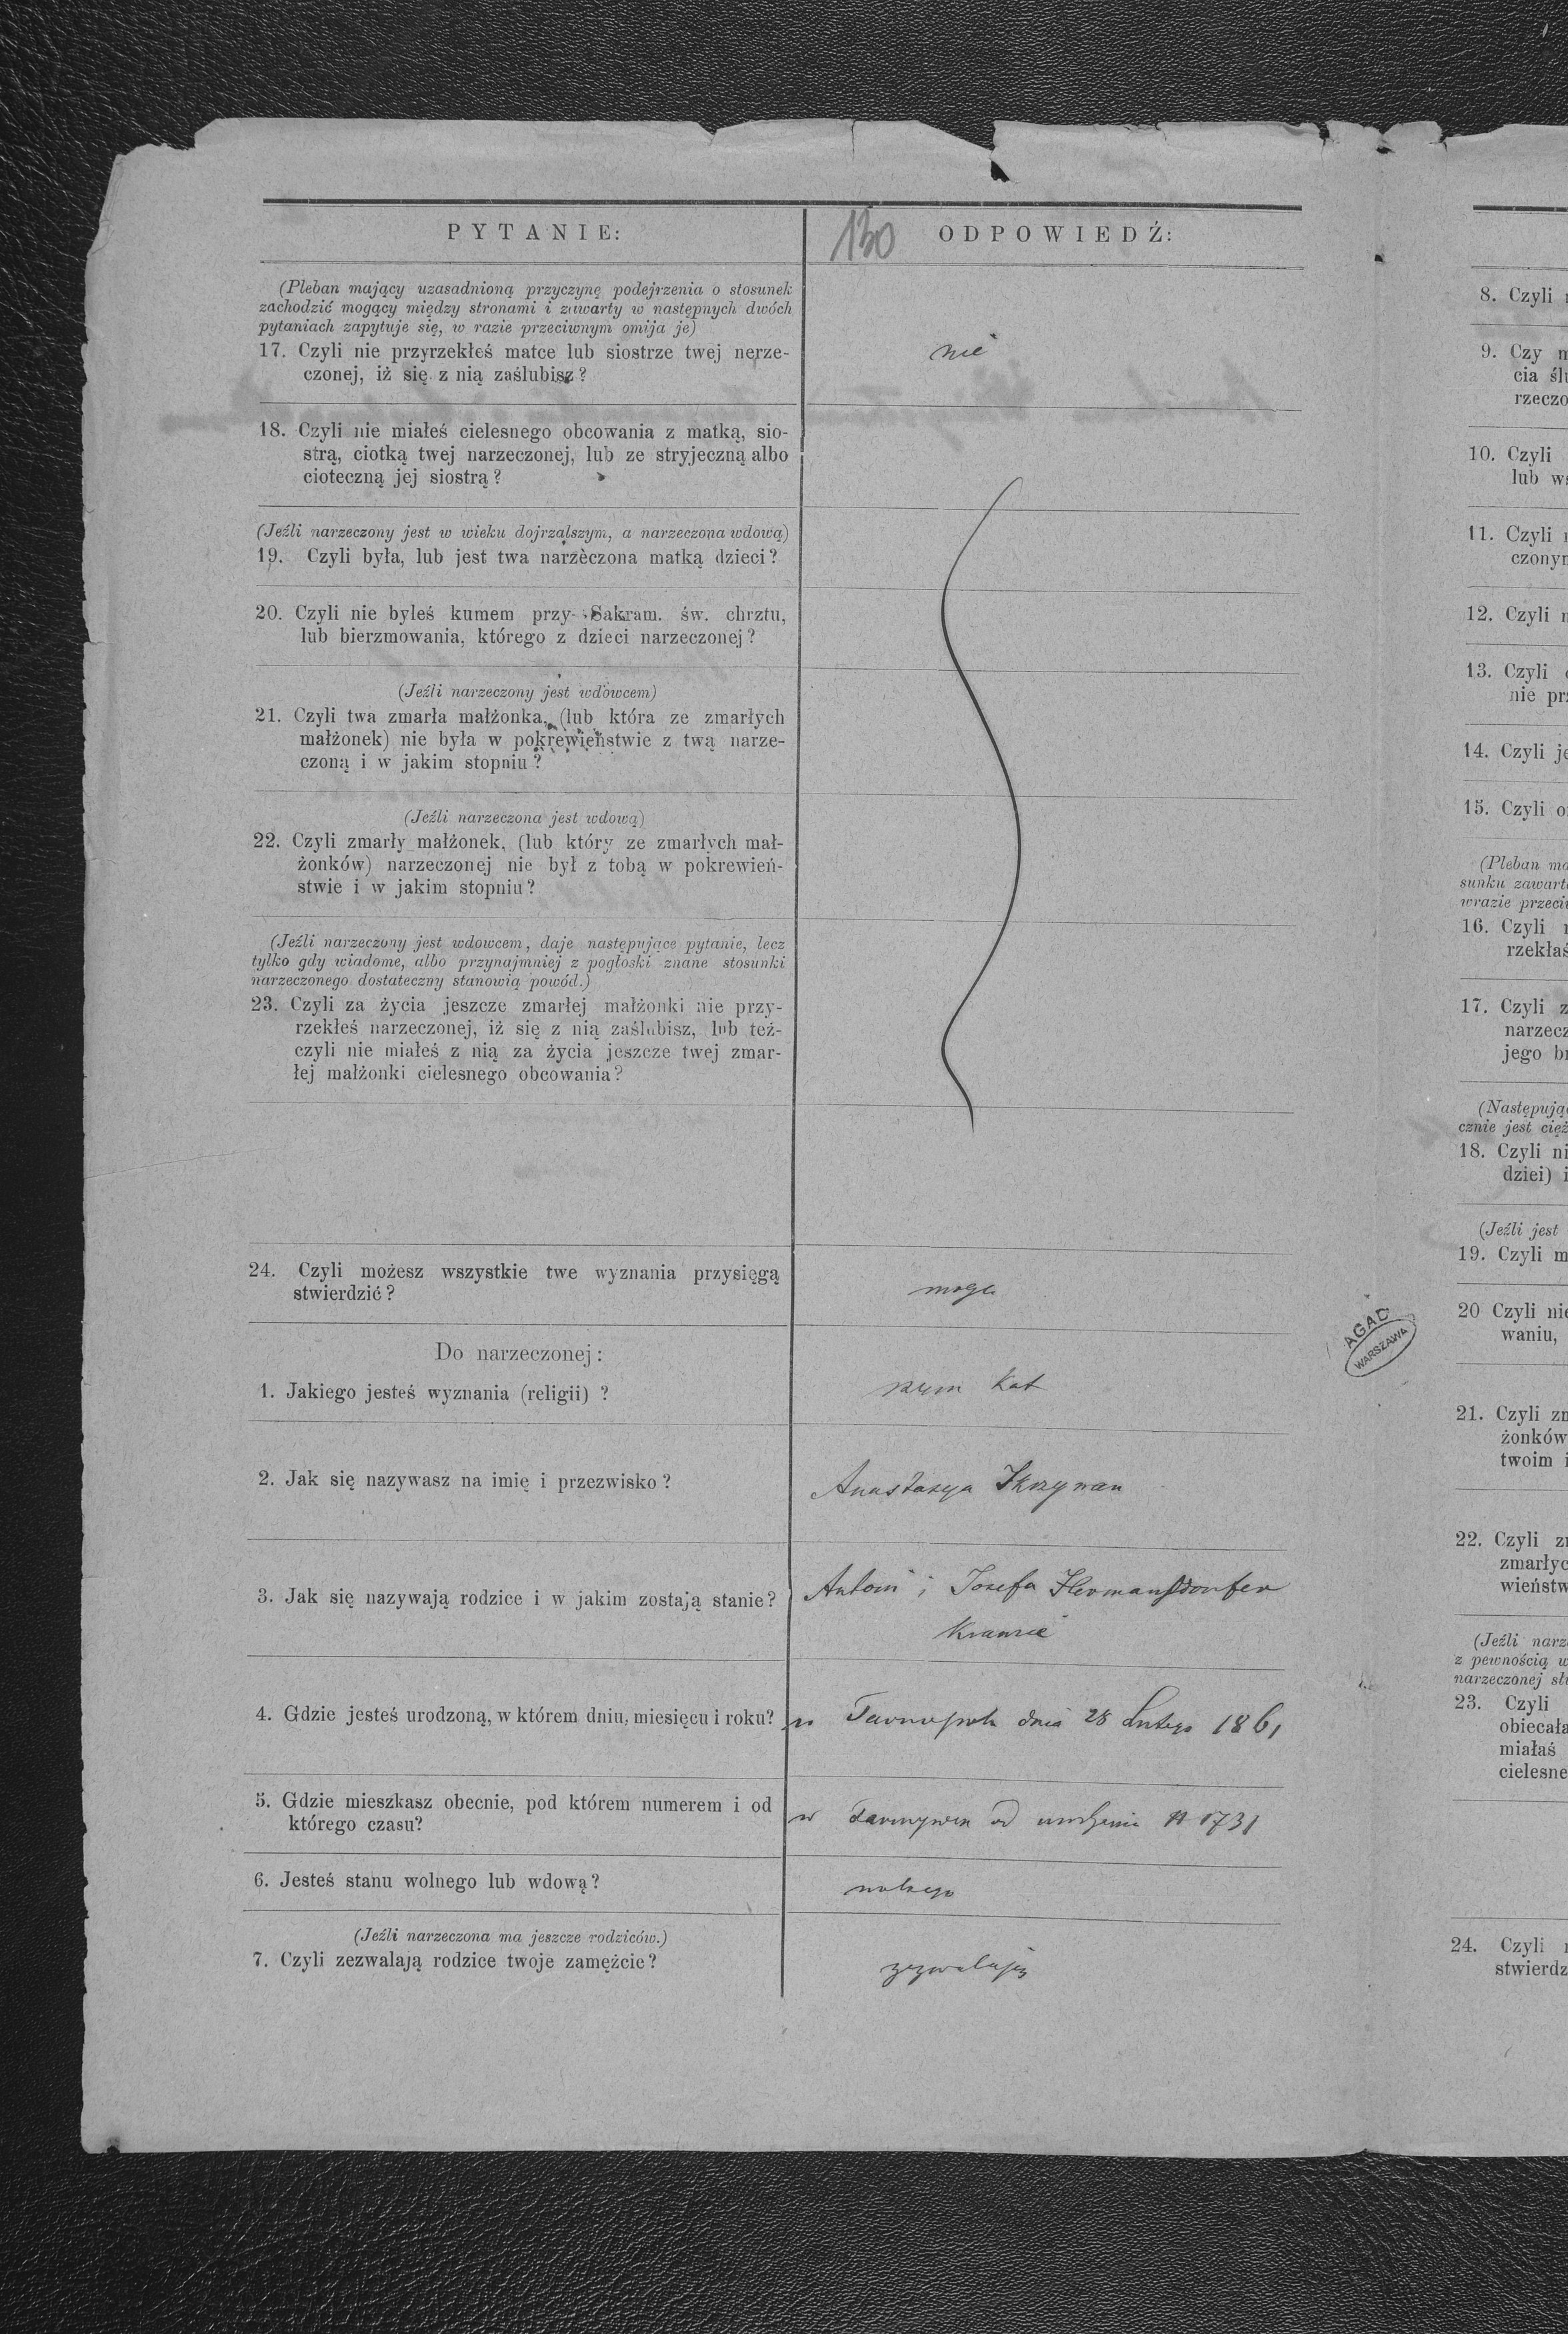 PYTANIE:
130
ODPOWIEDŹ:
(Pleban mający uzasadnioną przyczynę podejrzenia o stosunek
zachodzić mogący między stronami i zawarty w następnych dwóch
pytaniach zapytuje się, w razie przeciwnym omija je)
17. Czyli nie przyrzekłeś matce lub siostrze twej nerze-
czonej, iż się z nią zaślubisz?
nie
18. Czyli nie miałeś cielesnego obcowania z matką, sio-
strą, ciotką twej narzeczonej, lub ze stryjeczną albo
cioteczną jej siostrą?
(Jeźli narzeczony jest w wieku dojrzalszym, a narzeczona wdową)
19. Czyli była, lub jest twa narzeczona matką dzieci?
20. Czyli nie byłeś kumem przy Sakram. św. chrztu,
lub bierzmowania, którego z dzieci narzeczonej?
(Jeźli narzeczony jest wdowcem)
21. Czyli twa zmarła małżonka, (lub która ze zmarłych
małżonek) nie była w pokrewieństwie z twą narze-
czoną i w jakim stopniu?
(Jeźli narzeczona jest wdową)
22. Czyli zmarły małżonek, (lub który ze zmarłych mał-
żonków) narzeczonej nie był z tobą w pokrewień-
stwie i w jakim stopniu?
(Jeźli narzeczony jest wdowcem, daje następujące pytanie, lecz
tylko gdy wiadome, albo przynajmniej z pogłoski znane stosunki
narzeczonego dostateczny stanowią powód.)
23. Czyli za życia jeszcze zmarłej małżonki nie przy-
rzekłeś narzeczonej, iż się z nią zaślubisz, lub też
czyli nie miałeś z nią za życia jeszcze twej zmar-
łej małżonki cielesnego obcowania?
24. Czyli możesz wszystkie twe wyznania przysięgą
stwierdzić?
mogę
Do narzeczonej:
1. Jakiego jesteś wyznania (religii) ?
rzym kat
2. Jak się nazywasz na imię i przezwisko?
Anastazya
3. Jak się nazywają rodzice i w jakim zostają stanie?
Antoni i Josefa Hermansdorfer
4. Gdzie jesteś urodzoną, w którem dniu, miesięcu i roku?
w Tarnopolu dnia 28 Lutego 1861
5. Gdzie mieszkasz obecnie, pod którem numerem i od
którego czasu?
w od urodzenia N 1731
6. Jesteś stanu wolnego lub wdową?
wolnego
(Jeźli narzeczona ma jeszcze rodziców.)
7. Czyli zezwalają rodzice twoje zamężcie?
zezwalają
AGAD
WARSZAWA
8. Czyli
9. Czy
cia
rzeczo
10. Czyli
lub
11. Czyli
czonym
12. Czyli
13. Czyli
nie
14. Czyli
15. Czyli
(Pleban
sunku
wrazie
16. Czyli
rzekłaś
17. Czyli
narzecz
jego
(Następują
cznie jest
18. Czyli
dziei)
(Jeźli jest
19. Czyli
20 Czyli nie
waniu,
21. Czyli
żonków
twoim
22. Czyli
zmarłyc
wieństw
(Jeźli narz
z pewnością
narzeczonej
23. Czyli
obiecała
miałaś
cielesne
24. Czyli
stwierdz